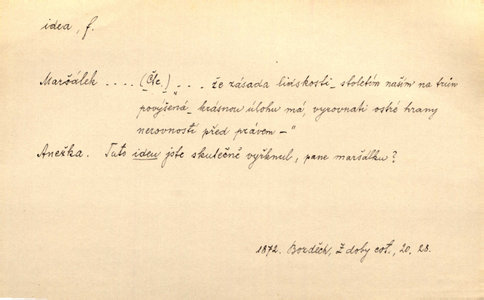 idea, f.
Maršálek .... (Čte.) „... že zásada lidskosti – stoletím naším na trůn
povýšená – krásnou úlohu má, vyrovnati ostré hrany
nerovností před právem –"
Anežka. Tuto ideu jste skutečně vyřknul, pane maršálku?
1872. Bozděch, Z doby cot., 20. 23.